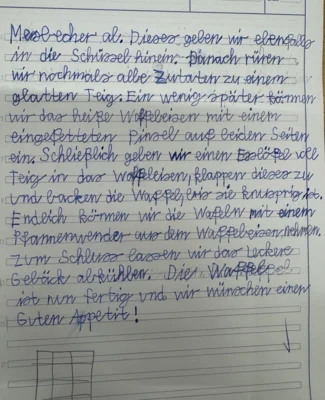 Messbecher al. Dieses geben wir ebenfalls
in die Schüssel hinein. Danach rüren
wir nochmals alle Zutaten zu einem
glatten Teig. Ein wenig später können
wir das heiße Waffeleisen mit einem
eingefetteten Pinsel auf beiden Seiten
ein. Schließlich geben wir einen Esslöfel voll
Teig in das Waffeleisen, klappen dieses zu
und backen die Waffel, bis sie knusprig ist.
Endlich können wir die Waffeln mit einem
Pfannenwender aus dem Waffeleisen nehmen.
Zum Schluss lassen wir das leckere
Gebäck abkühlen. Die Waffel
ist nun fertig und wir wünschen einen
Guten Appetit!